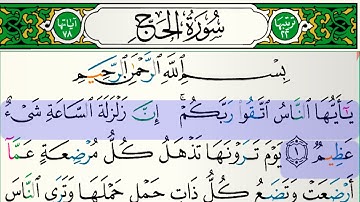 ترتيبها ٢٢ سُورَةُ الحَجِّ آياتها ٧٨
بِسْمِ ٱللَّهِ ٱلرَّحْمَٰنِ ٱلرَّحِيمِ
يَٰٓأَيُّهَا ٱلنَّاسُ ٱتَّقُوا۟ رَبَّكُمْ ۚ إِنَّ زَلْزَلَةَ ٱلسَّاعَةِ شَىْءٌ
عَظِيمٌ ١ يَوْمَ تَرَوْنَهَا تَذْهَلُ كُلُّ مُرْضِعَةٍ عَمَّآ
أَرْضَعَتْ وَتَضَعُ كُلُّ ذَاتِ حَمْلٍ حَمْلَهَا وَتَرَى ٱلنَّاسَ